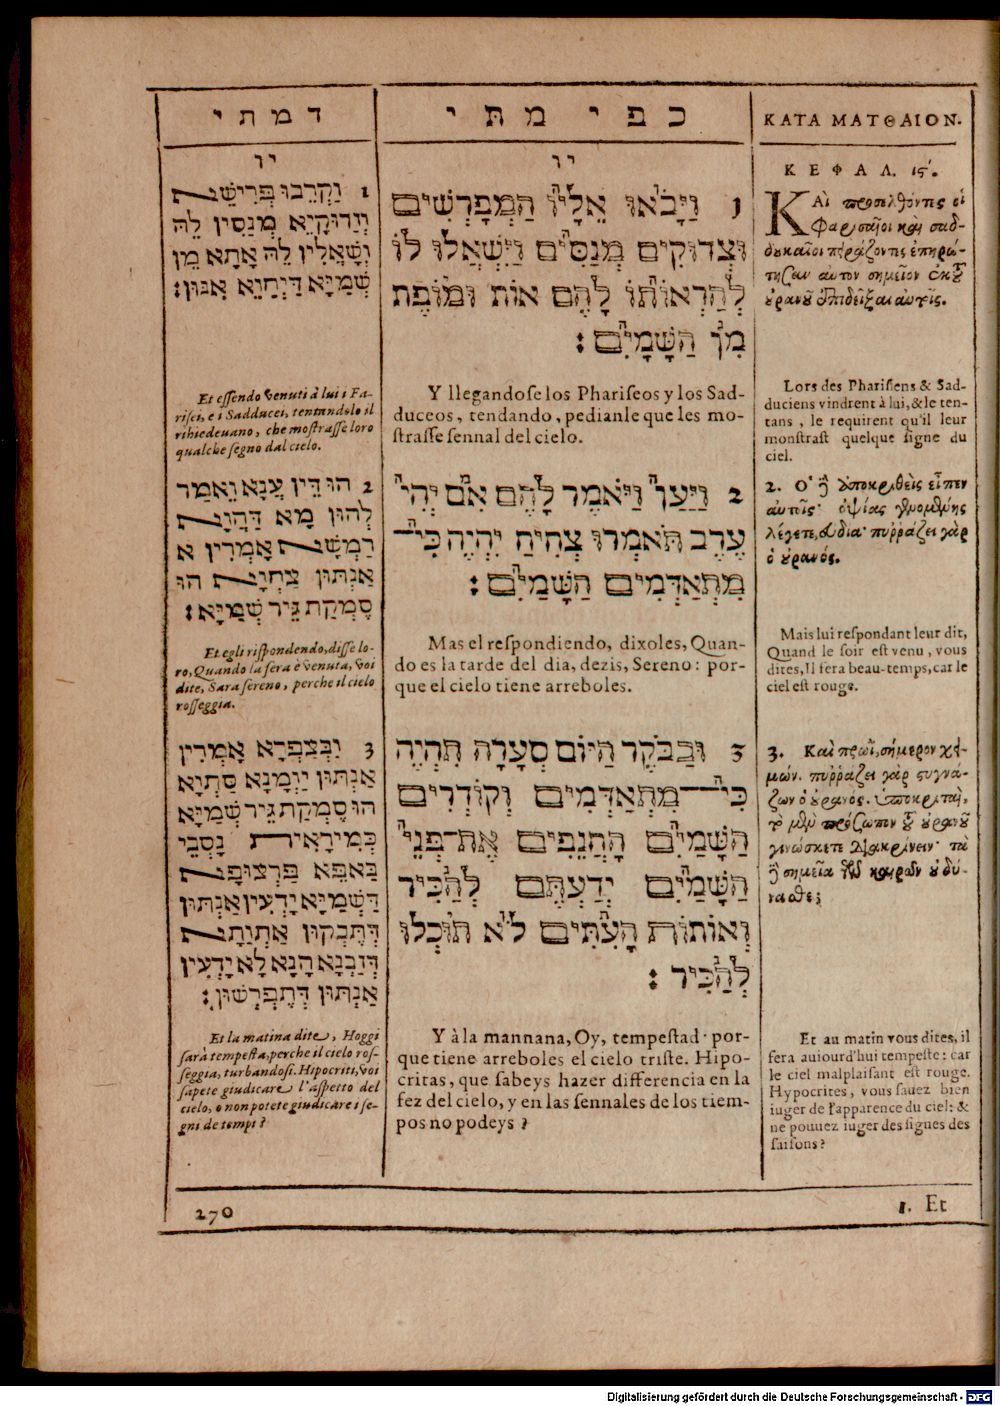 דמתי
יו
1 וַקְרֵבו פְּרִישֵׁא
וְזַדוּקָיֵא מְנַסֵין לֵהּ
וְשָׁאֲלִין לֵהּ אָתָא מֵן
שְׁמַיָא דַיְחַוֵא אֵנוּן:
Et essendo venuti à lui i Fa-
risei, e i Sadducei, tentandolo il
rihiedeuano, che mostrasse loro
qualche segno dal cielo.
2 הו דֵין עֲנָא וֵאמַר
לְהון מָא דַּהֲוָא
רַמְשָׁא אָמְרִין א
אַנתּוּן צַחְוָא הו
סֶמְקַת גֵּיר שְׁמַיָּא:
Et egli rispondendo, disse lo-
ro, Quando la sera è venuta, voi
dite, Sara sereno, perche il cielo
rosseggia.
3 וַבְצַפְרָא אָמְרִין
אַנתּוּן יַוְמָנָא סַתְוָא
הו סֶמְקַת גֵּיר שְׁמַיָּא
כְּמִירָאִית נָסְבֵי
בַּאפֵא פַּרְצוּפָא
דַּשְׁמַיָּא יָדְעִין אַנתּוּן
דְּתֶבְקוּן אַתְוָתָא
דְּזַבְנָא הָנָא לָא יָדְעִין
אַנְתּוּן דְּתֶפְרְשׁוּן:
Et la matina dite, Hoggi
sarà tempesta, perche il cielo ros-
seggia, turbandosi. Hipocriti, voi
sapete giudicare l'aspetto del
cielo, e non potete giudicare i se-
gni de tempi?
כפי מתי
יו
1 וַיָּבֹאוּ אֵלָיו הַמְּפָרְשִׁים
וּצְדוּקִים מְנַסִּים וַיִּשְׁאֲלוּ לוֹ
לְהַרְאוֹתוֹ לָהֶם אוֹת וּמוֹפֶת
מִן הַשָּׁמָיִם:
Y llegandose los Phariseos y los Sad-
duceos, tendando, pedianle que les mo-
strasse sennal del cielo.
2 וַיַּעַן וַיֹּאמֶר לָהֶם אִם יְהִי
עֶרֶב תֹּאמְרוּ צְחִיחַ יִהְיֶה כִּי־
מִתְאַדְּמִים הַשָּׁמַיִם:
Mas el respondiendo, dixoles, Quan-
do es la tarde del dia, dezis, Sereno: por-
que el cielo tiene arreboles.
3 וּבַבֹּקֶר הַיּוֹם סְעָרָה תִּהְיֶה
כִּי־ מִתְאַדְּמִים וְקוֹדְרִים
הַשָּׁמַיִם הַחֲנֵפִים אֶת־פְּנֵי
הַשָּׁמַיִם יְדַעְתֶּם לְהַכִּיר
וְאוֹתוֹת הָעִתִּים לֹא תּוּכְלוּ
לְהַכִּיר:
Y à la mannana, Oy, tempestad· por-
que tiene arreboles el cielo triste. Hipo-
critas, que sabeys hazer differencia en la
fez del cielo, y en las sennales de los tiem-
pos no podeys?
ΚΑΤΑ ΜΑΤΘΑΙΟΝ.
ΚΕΦΑΛ. ιϛ'.
ΚΑὶ προσελθόντες οἱ
Φαρισαῖοι καὶ σαδ-
δουκαῖοι πειράζοντες ἐπηρώ-
τησαν αὐτὸν σημεῖον ἐκ τοῦ
οὐρανοῦ ἐπιδεῖξαι αὐτοῖς.
Lors des Pharisiens & Sad-
duciens vindrent à lui, & le ten-
tans, le requirent qu'il leur
monstrast quelque signe du
ciel.
2. Ὁ δὲ ἀποκριθεὶς εἶπεν
αὐτοῖς· ὀψίας γενομένης
λέγετε, εὐδία· πυῤῥάζει γὰρ
ὁ οὐρανός.
Mais lui respondant leur dit,
Quand le soir est venu, vous
dites, Il fera beau-temps, car le
ciel est rouge.
3. Καὶ πρωῒ, σήμερον χει-
μών. πυῤῥάζει γὰρ στυγνά-
ζων ὁ οὐρανός. ὑποκριταὶ,
τὸ μὲν πρόσωπον τοῦ οὐρανοῦ
γινώσκετε διακρίνειν· τὰ
δὲ σημεῖα τῶν καιρῶν οὐ δύ-
νασθε;
Et au matin vous dites, il
fera auiourd'hui tempeste: car
le ciel malplaisant est rouge.
Hypocrites, vous sauez bien
iuger de l'apparence du ciel: &
ne pouuez iuger des signes des
saisons?
270
1. Et
Digitalisierung gefördert durch die Deutsche Forschungsgemeinschaft - DFG